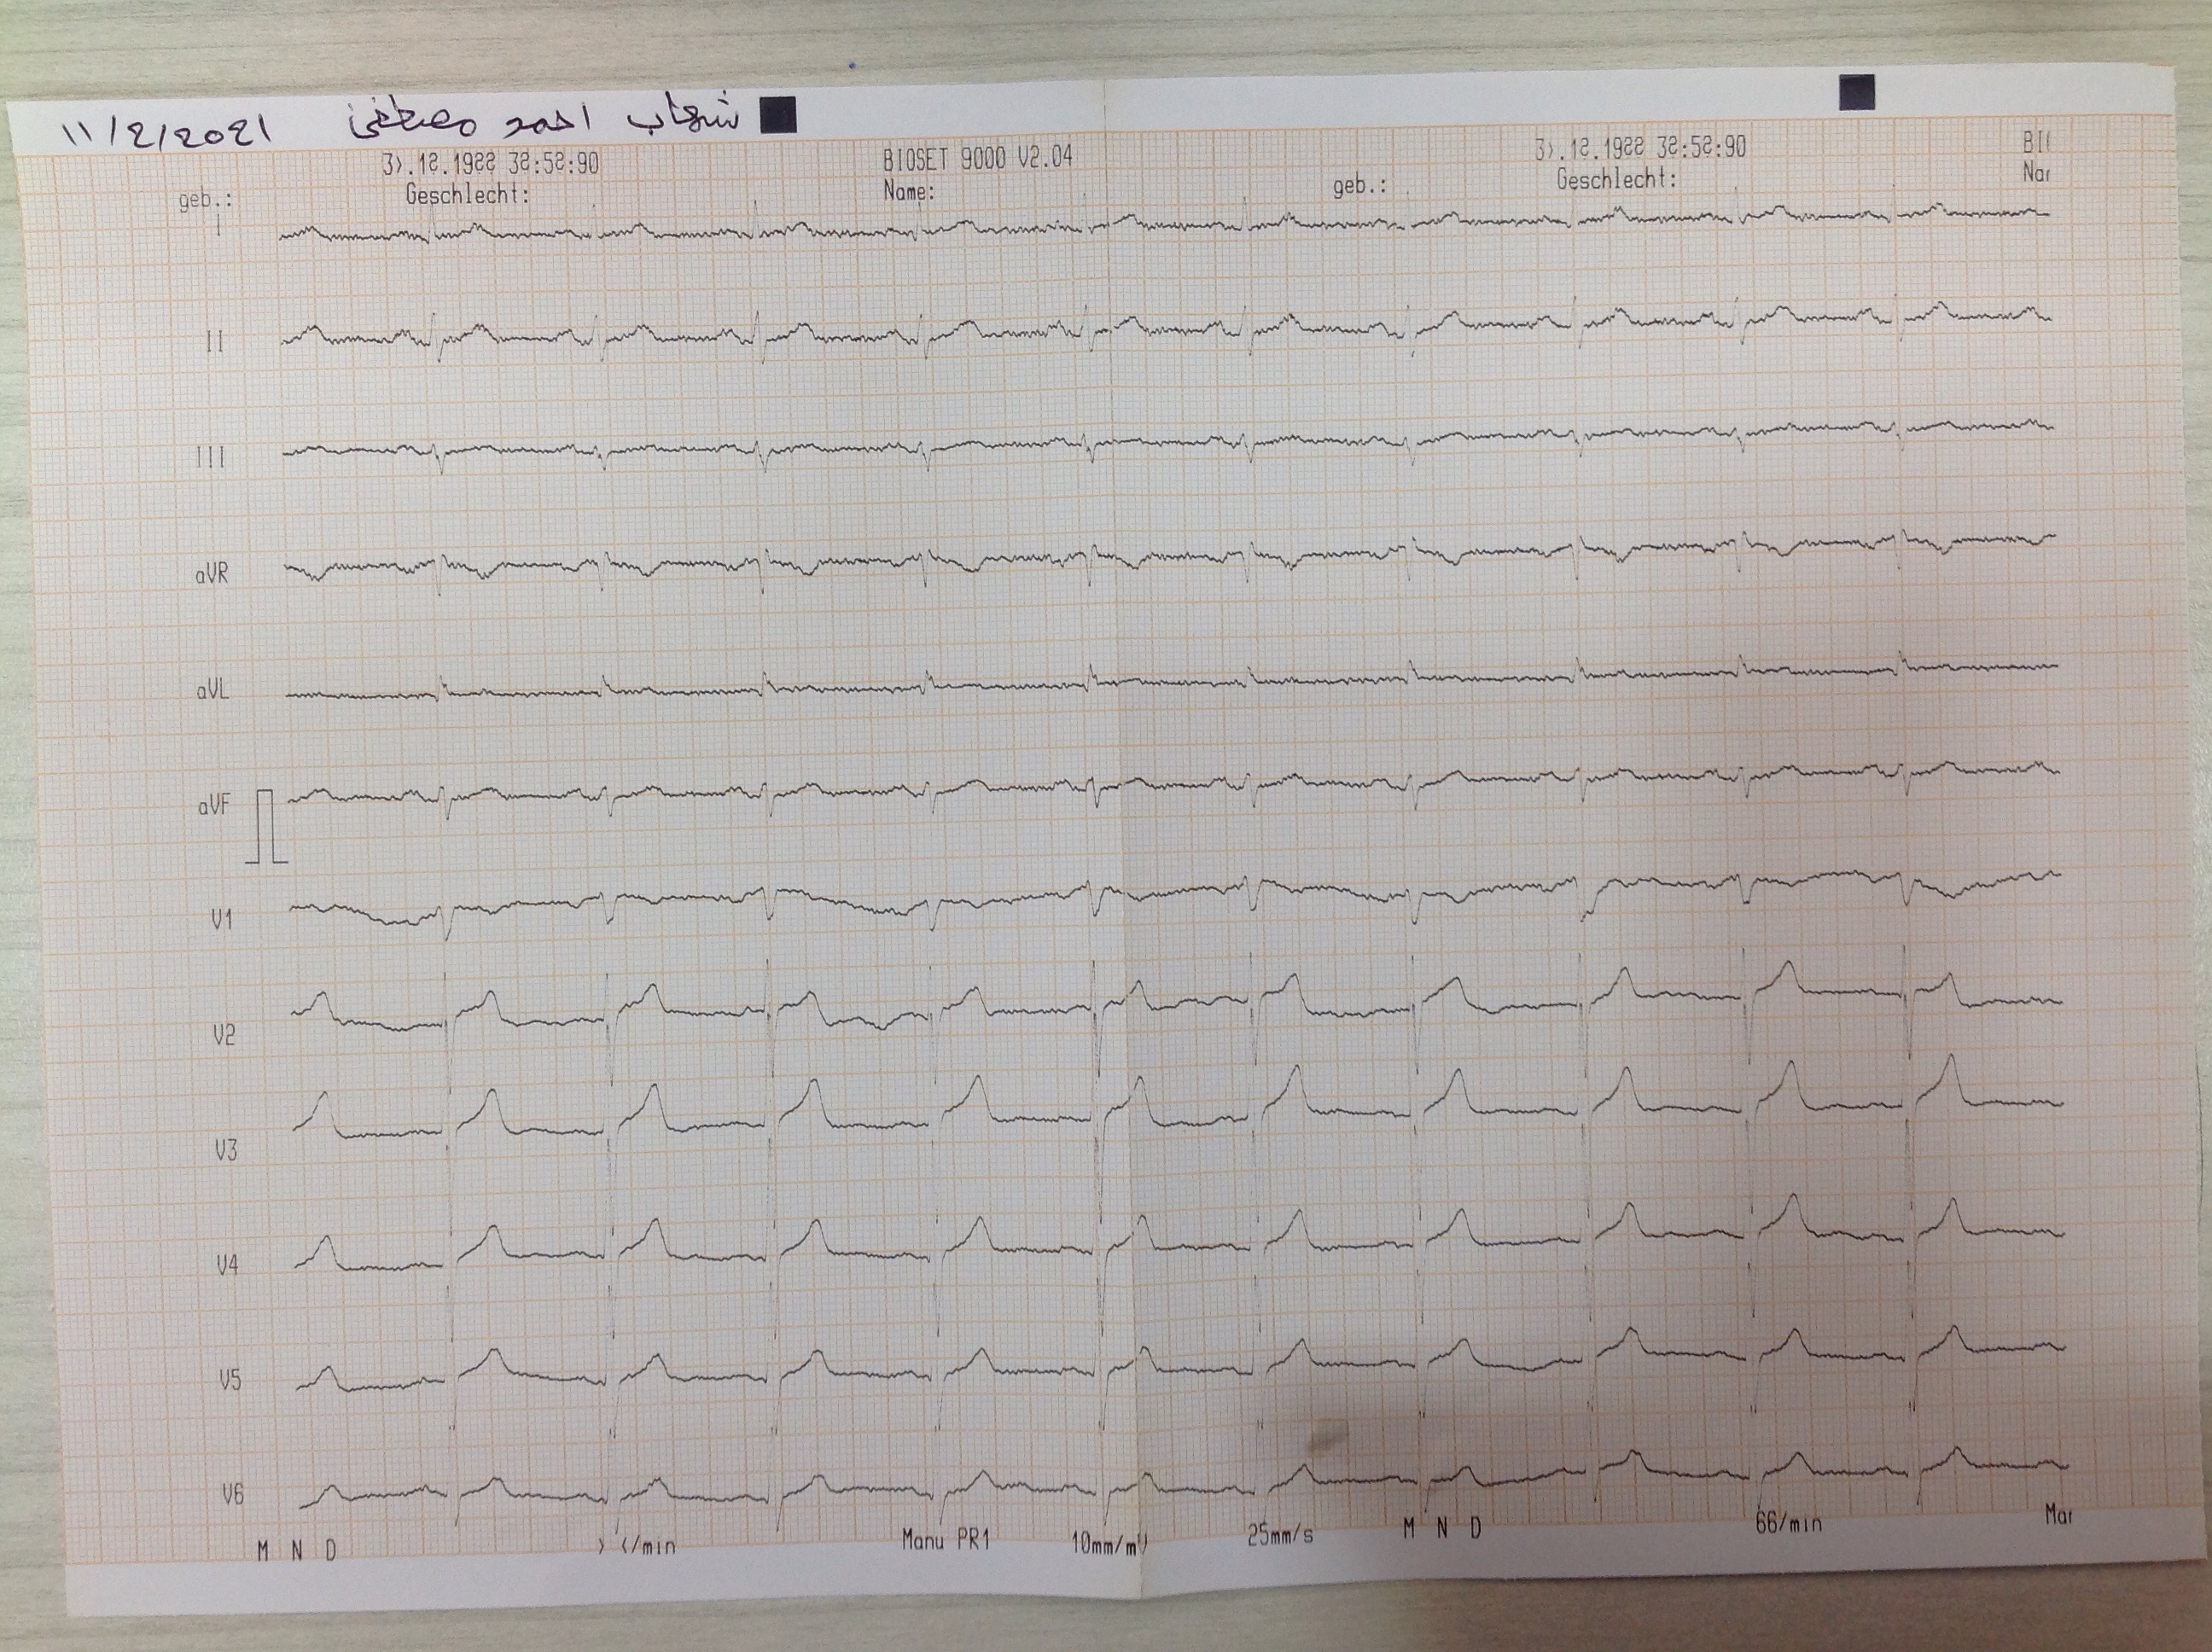 11/2/2021 شهاب احمد مصطفى
3>.12.1988 38:58:90 BIOSET 9000 V2.04 3>.12.1988 38:58:90 BI
geb.: Geschlecht: Name: geb.: Geschlecht: Nar
I
II
III
aVR
aVL
aVF
V1
V2
V3
V4
V5
V6
M N D > </min Manu PR1 10mm/mV 25mm/s M N D 66/min Mar